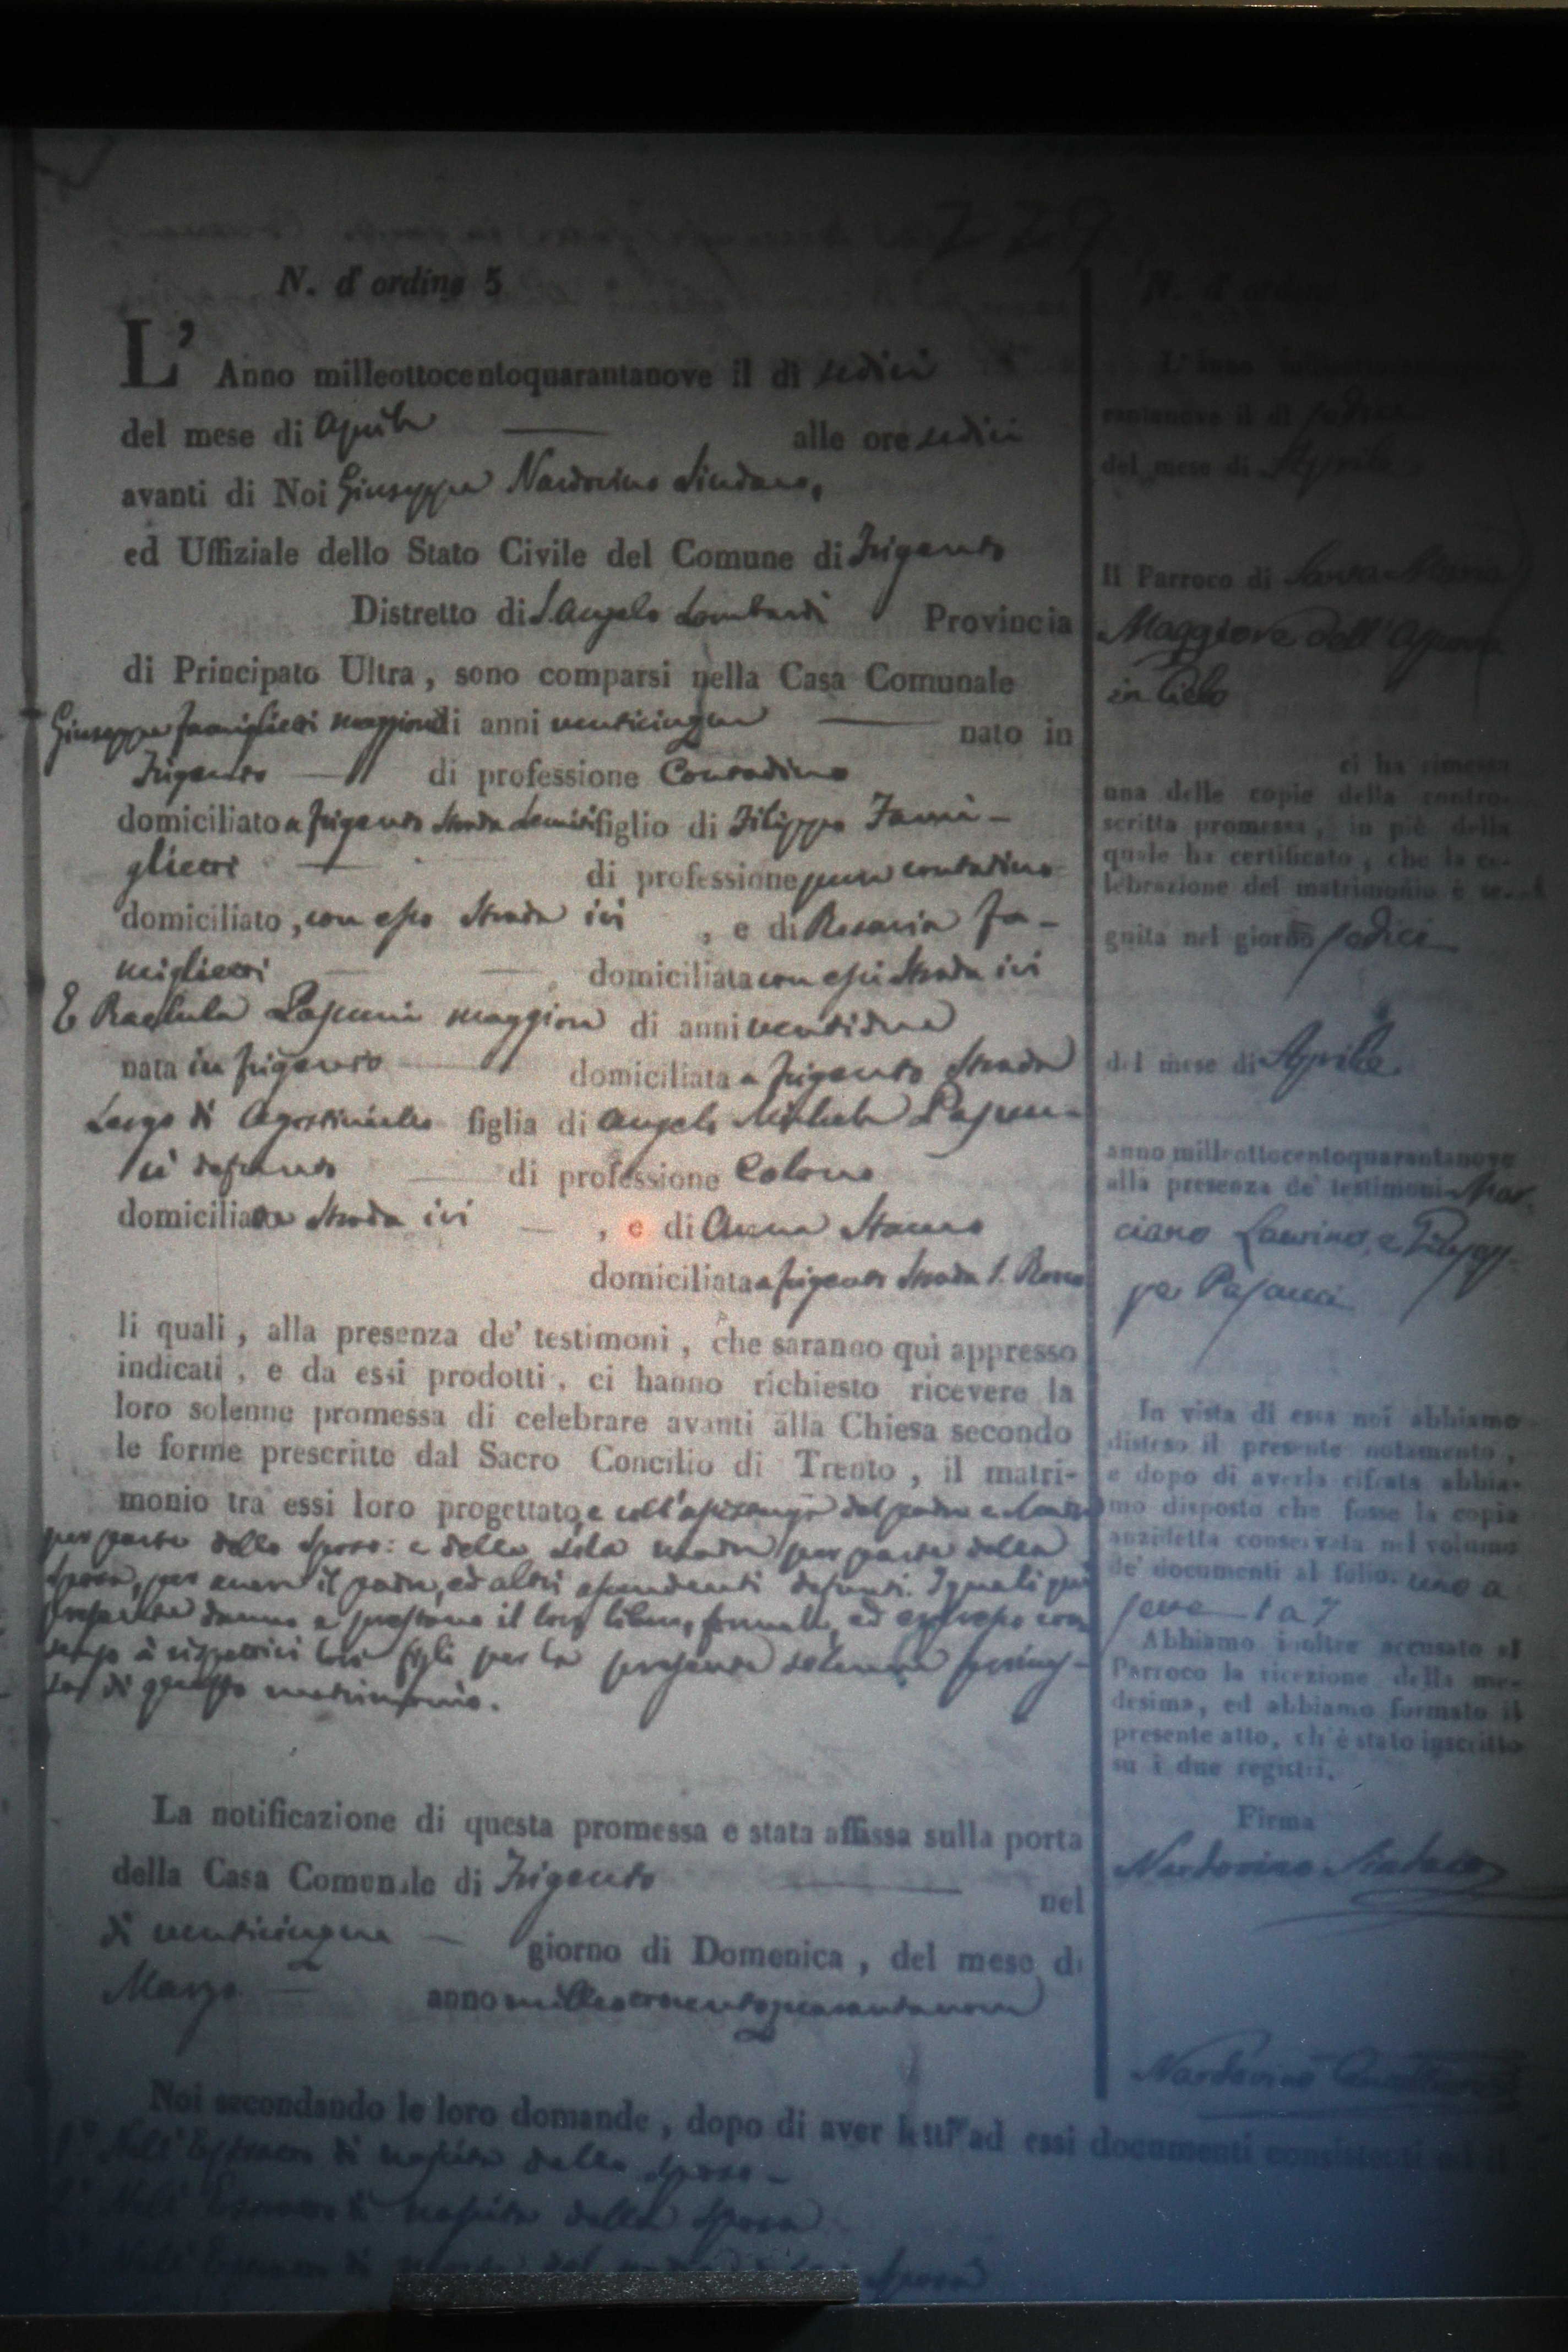 229
N. d'ordine 5
L' Anno milleottocentoquarantanove il dì sedici
del mese di Aprile alle ore sedici
avanti di Noi Giuseppe Nardovino Sindaco,
ed Uffiziale dello Stato Civile del Comune di Frigento
Distretto di S. Angelo Lombardi Provincia
di Principato Ultra, sono comparsi nella Casa Comunale
Giuseppe Famiglietti maggiore di anni venticinque nato in
Frigento di professione Contadino
domiciliato a Frigento Strada figlio di Filippo Fami-
glietti di professione pure contadino
domiciliato, con esso Strada ivi, e di Rosaria Fa-
miglietti domiciliata con essi Strada ivi
E Rachela maggiore di anni ventidue
nata in Frigento domiciliata a Frigento Strada
Largo di figlia di Angelo Michele
defunto di professione Colono
domiciliato Strada ivi, e di Anna
domiciliata a Frigento Strada S. Rocco
li quali, alla presenza de' testimoni, che saranno quì appresso
indicati, e da essi prodotti, ci hanno richiesto ricevere la
loro solenne promessa di celebrare avanti alla Chiesa secondo
le forme prescritte dal Sacro Concilio di Trento, il matri-
monio tra essi loro progettato, e coll'assistenza del padre e
per parte dello Sposo: e della sola madre per parte della
Sposa, per essere il padre, ed altri ascendenti defunti. I quali qui
presente danno e prestano il loro libero, formale, ed espresso con
senso a rispettivi loro figli per la presente solenne promes-
sa di questo matrimonio.
La notificazione di questa promessa è stata affissa sulla porta
della Casa Comunale di Frigento nel
dì venticinque giorno di Domenica, del mese di
Marzo anno milleottocentoquarantanove
Noi secondando le loro domande, dopo di aver letti ad essi documenti consistenti
1° Nell' di nascita dello sposo
2° Nell' di nascita della Sposa
3° Nell' di Sposa
N. d'ordine
L'anno
rantanove il dì sedici
del mese di Aprile
Il Parroco di Santa Maria
Maggiore dell'
in Cielo
ci ha rimessa
una delle copie della contro-
scritta promessa, in piè della
quale ha certificato, che la ce-
lebrazione del matrimonio è se-
guita nel giorno sedici
del mese di Aprile
anno milleottocentoquarantanove
alla presenza de' testimoni Mar
ciano Laurino, e
In vista di essa noi abbiamo
disteso il presente notamento,
e dopo di averla cifrata abbia-
mo disposto che fosse la copia
anzidetta conservata nel volume
de' documenti al folio uno a
sette 1 a 7
Abbiamo inoltre accusato al
Parroco la ricezione della me-
desima, ed abbiamo formato il
presente atto, ch'è stato inscritto
su i due registri.
Firma
Nardovino Sindaco
Nardovino